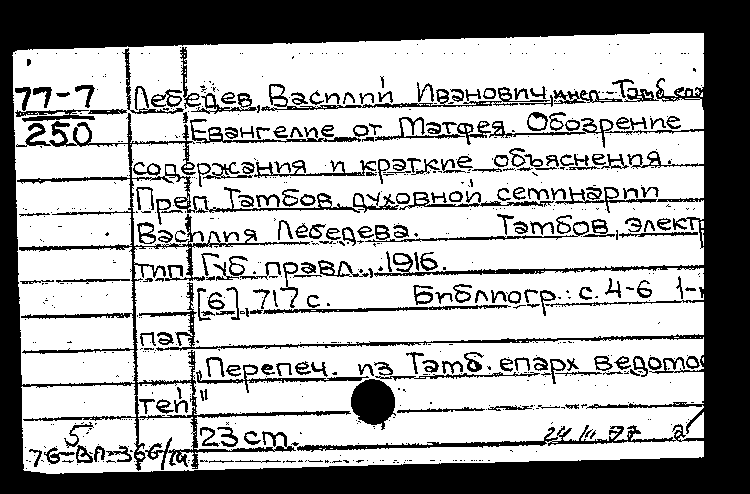 77-7
250
Лебедев, Василий Иванович, инсп. Тамб. епар
Евангелие от Матфея. Обозрение
содержания и краткие объяснения.
Преп. Тамбов. духовной семинарии
Василия Лебедева. Тамбов, электр
тип. Губ. правл., 1916.
[6], 717 с. Библиогр.: с. 4-6 1-
паг.
"Перепеч. из Тамб. епарх ведомос
тей"
23 ст. 24 III 77
5